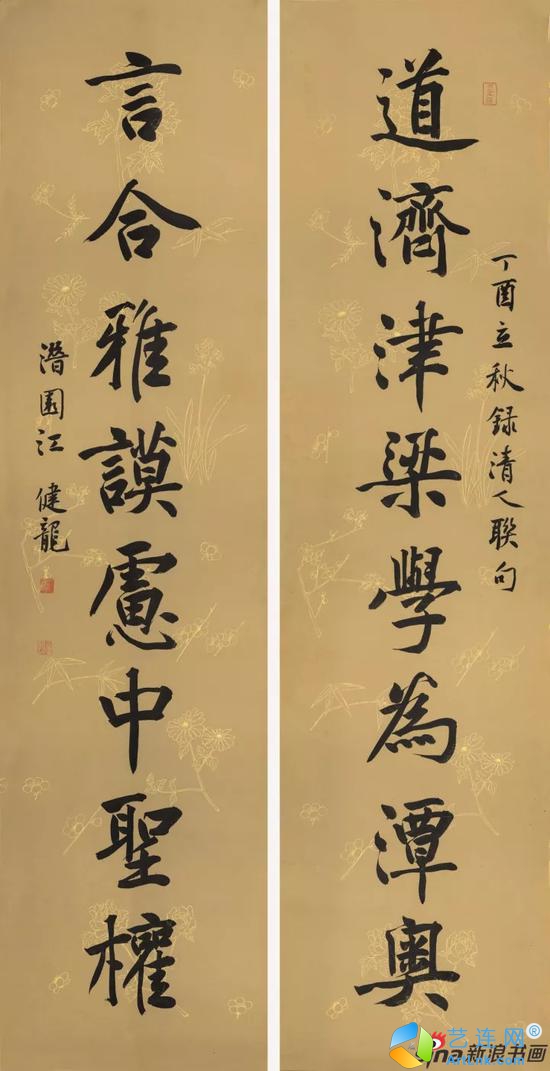 道濟津梁學為潭奧
丁酉立秋録清人聯句
言合雅謨慮中聖權
潛園江健龍
艺连网®
新浪书画